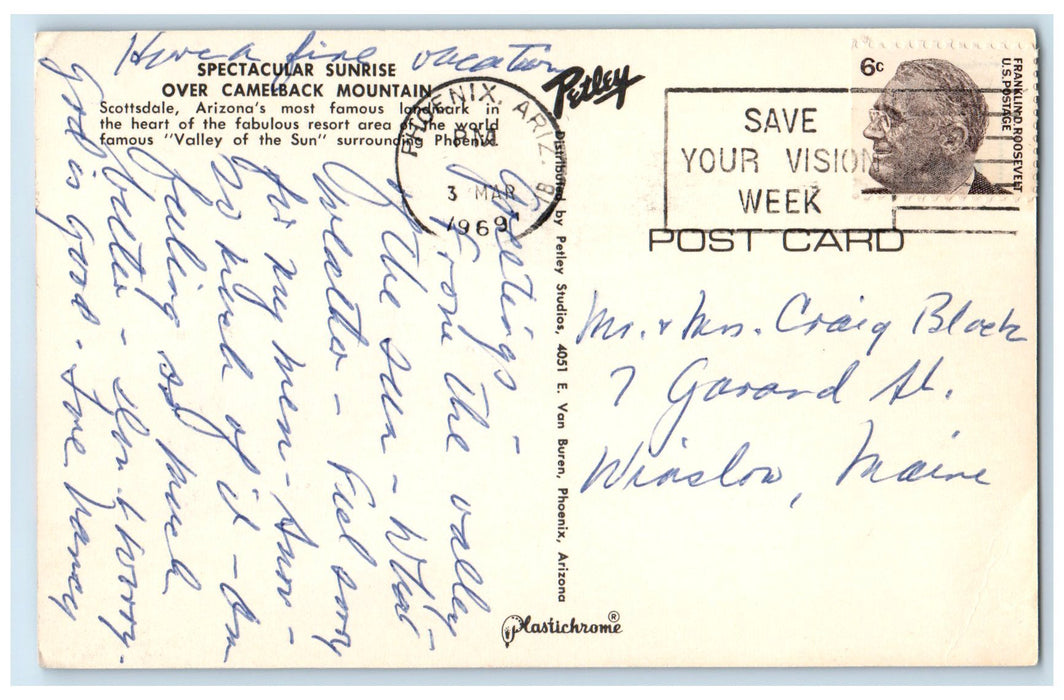 SPECTACULAR SUNRISE
OVER CAMELBACK MOUNTAIN
Scottsdale, Arizona's most famous landmark in
the heart of the fabulous resort area of the world
famous "Valley of the Sun" surrounding Phoenix.
Petley
PHOENIX, ARIZ.
PM
3 MAR
1969
SAVE
YOUR VISION
WEEK
6c
FRANKLIN D. ROOSEVELT
U.S. POSTAGE
POST CARD
Distributed by Petley Studios, 4051 E. Van Buren, Phoenix, Arizona
Plastichrome®
Greetings -
From the valley
of the sun - What
weather - Feel sorry
for my men - snow -
so much of it - Am
feeling so much
better - don't worry.
God is good - Love Nancy
Have a fine vacation
Mr. & Mrs. Craig Block
7 Garand St.
Winslow, Maine